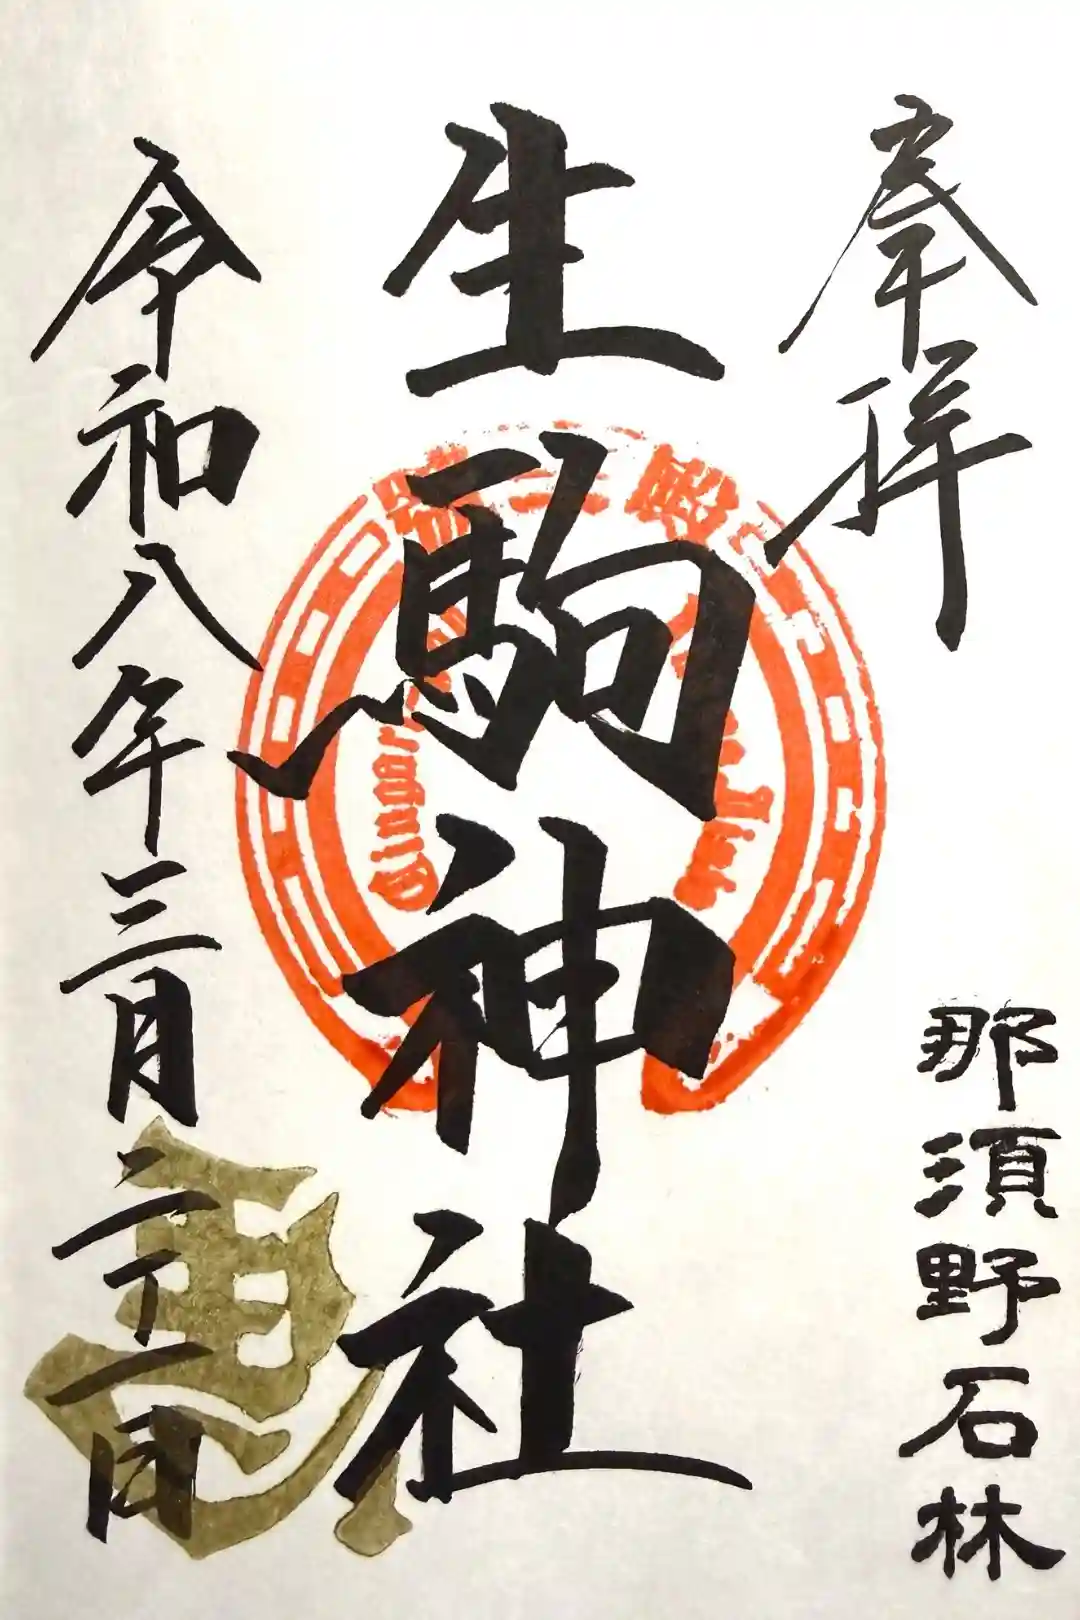 奉拝
那須野石林
生駒神社
令和八年三月二十一日